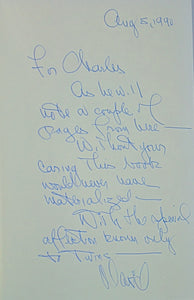 Aug 5, 1990
For Charles
As he will
note a couple of
pages from here —
Without your
caring this book
would never have
materialized —
With the special
affection known only
to Twins —